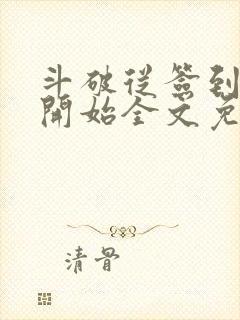 斗破從簽到
開始全文免
清骨